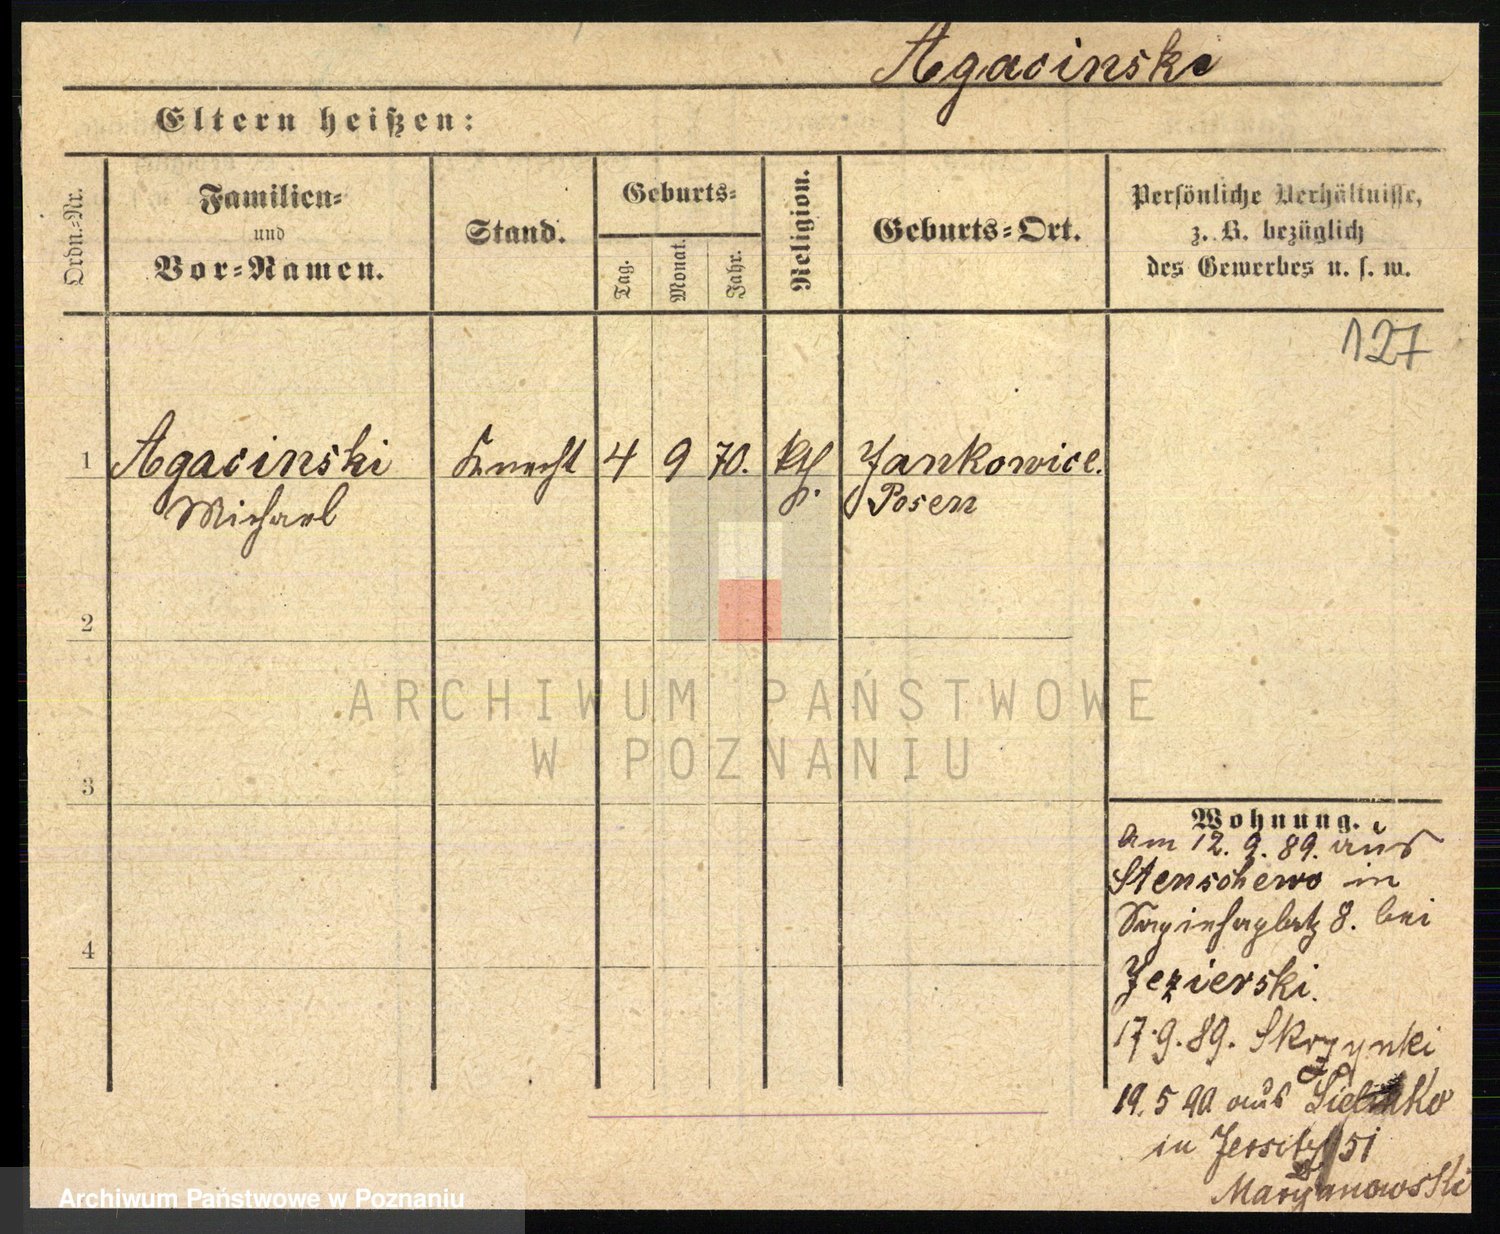 Agacinski
Eltern heißen:
Ordn.-Nr.
Familien-
und
Vor-Namen.
Stand.
Geburts-
Tag.
Monat.
Jahr.
Religion.
Geburts-Ort.
Persönliche Verhältnisse,
z. B. bezüglich
des Gewerbes u. s. w.
127
1 Agacinski Knecht 4 9 70. kth. Jankowice.
Michael Posen
2
3
4
ARCHIWUM PAŃSTWOWE
W POZNANIU
Wohnung.
Am 12. 9. 89. aus
Stenschewo in
Sapiehaplatz 8. bei
Jezierski.
17.9.89. Skrzynki
19. 5 90 aus
in Jersitz 51
Maryanowski
Archiwum Państwowe w Poznaniu